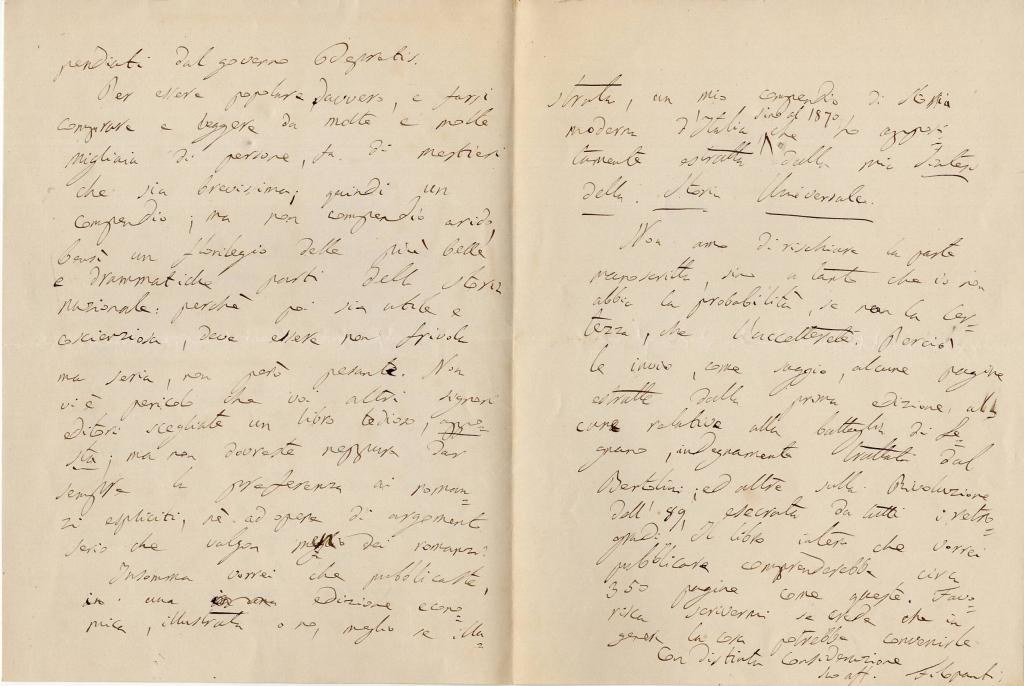 pendiati dal governo Depretis.
Per essere popolare davvero, e farsi
comprare e leggere da molte e molte
migliaia di persone, fa di mestieri
che sia brevissima; quindi un
compendio; ma non compendio arido,
bensì un florilegio delle più belle
e drammatiche parti della storia
nazionale: perchè poi sia utile e
coscienziosa, deve essere non frivola
ma seria, non però pesante. Non
vi è pericolo che voi altri signori
editori scegliate un libro tedioso, appo-
sta; ma non dovreste neppure dar
sempre la preferenza ai roman-
zi espliciti, nè ad opere di argomento
serio che valgon meglio dei romanzi.
Insomma vorrei che pubblicaste,
in una edizione econo
mica, illustrata o no, meglio se illu-
strata, un mio compendio di storia
moderna d'Italia sino al 1870, che ho apposi
tamente estratta dalla mia Sintesi
della Storia Universale.
Non amo di rischiare la parte
manoscritta, sino a tanto che io non
abbia la probabilità, se non la cer-
tezza, che l'accetterete. Perciò
le invio, come saggio, alcune pagine
estratte dalla prima edizione, al-
cune relative alla battaglia di Le-
gnano, indegnamente trattata dal
Bertolini; ed altre sulla Rivoluzione
dell' 89, esecrata da tutti i retro-
gradi. Il libro intero che vorrei
pubblicare comprenderebbe circa
350 pagine come queste. Favo-
risca scrivermi se crede che in
genere la cosa potrebbe convenirle.
Con distinta considerazione
suo aff. Filopanti.